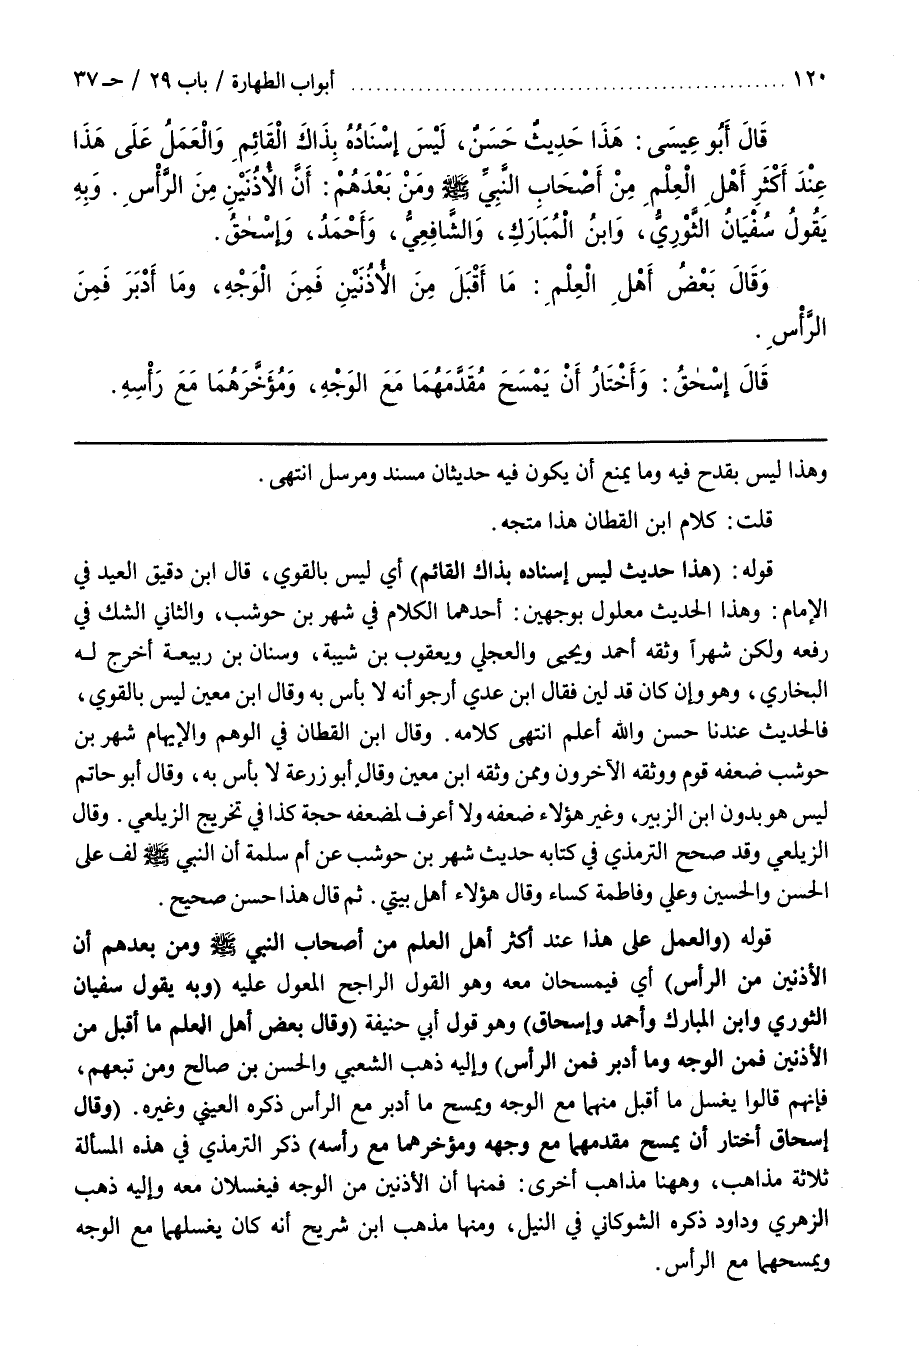 ١٢٠ ............................................... أبواب الطهارة / باب ٢٩ / حـ ٣٧
قَالَ أَبُو عِيسَى: هَذَا حَدِيثٌ حَسَنٌ، لَيْسَ إِسْنَادُهُ بِذَاكَ الْقَائِمِ وَالْعَمَلُ عَلَى هَذَا
عِنْدَ أَكْثَرِ أَهْلِ الْعِلْمِ مِنْ أَصْحَابِ النَّبِيِّ ﷺ ومَنْ بَعْدَهُمْ: أَنَّ الأُذُنَيْنِ مِنَ الرَّأْسِ. وَبِهِ
يَقُولُ سُفْيَانُ الثَّوْرِيُّ، وَابنُ الْمُبَارَكِ، وَالشَّافِعِيُّ، وَأَحْمَدُ، وَإِسْحٰقُ.
وَقَالَ بَعْضُ أَهْلِ الْعِلْمِ: مَا أَقْبَلَ مِنَ الأُذُنَيْنِ فَمِنَ الْوَجْهِ، ومَا أَدْبَرَ فَمِنَ
الرَّأْسِ.
قَالَ إِسْحٰقُ: وَأَخْتَارُ أَنْ يَمْسَحَ مُقَدَّمَهُمَا مَعَ الوَجْهِ، وَمُؤَخَّرَهُمَا مَعَ رَأْسِهِ.
وهذا ليس بقدح فيه وما يمنع أن يكون فيه حديثان مسند ومرسل انتهى.
قلت: كلام ابن القطان هذا متجه.
قوله: (هذا حديث ليس إسناده بذاك القائم) أي ليس بالقوي، قال ابن دقيق العيد في
الإمام: وهذا الحديث معلول بوجهين: أحدهما الكلام في شهر بن حوشب، والثاني الشك في
رفعه ولكن شهراً وثقه أحمد ويحيى والعجلي ويعقوب بن شيبة، وسنان بن ربيعة أخرج له
البخاري، وهو وإن كان قد لين فقال ابن عدي أرجو أنه لا بأس به وقال ابن معين ليس بالقوي،
فالحديث عندنا حسن والله أعلم انتهى كلامه. وقال ابن القطان في الوهم والإيهام شهر بن
حوشب ضعفه قوم ووثقه الآخرون وممن وثقه ابن معين وقال أبو زرعة لا بأس به، وقال أبو حاتم
ليس هو بدون ابن الزبير، وغير هؤلاء ضعفه ولا أعرف لمضعفه حجة كذا في تخريج الزيلعي. وقال
الزيلعي وقد صحح الترمذي في كتابه حديث شهر بن حوشب عن أم سلمة أن النبي ﷺ لف على
الحسن والحسين وعلي وفاطمة كساء وقال هؤلاء أهل بيتي. ثم قال هذا حسن صحيح.
قوله (والعمل على هذا عند أكثر أهل العلم من أصحاب النبي ﷺ ومن بعدهم أن
الأذنين من الرأس) أي فيمسحان معه وهو القول الراجح المعول عليه (وبه يقول سفيان
الثوري وابن المبارك وأحمد وإسحاق) وهو قول أبي حنيفة (وقال بعض أهل العلم ما أقبل من
الأذنين فمن الوجه وما أدبر فمن الرأس) وإليه ذهب الشعبي والحسن بن صالح ومن تبعهم،
فإنهم قالوا يغسل ما أقبل منهما مع الوجه ويمسح ما أدبر مع الرأس ذكره العيني وغيره. (وقال
إسحاق أختار أن يمسح مقدمهما مع وجهه ومؤخرهما مع رأسه) ذكر الترمذي في هذه المسألة
ثلاثة مذاهب، وههنا مذاهب أخرى: فمنها أن الأذنين من الوجه فيغسلان معه وإليه ذهب
الزهري وداود ذكره الشوكاني في النيل، ومنها مذهب ابن شريح أنه كان يغسلهما مع الوجه
ويمسحهما مع الرأس.